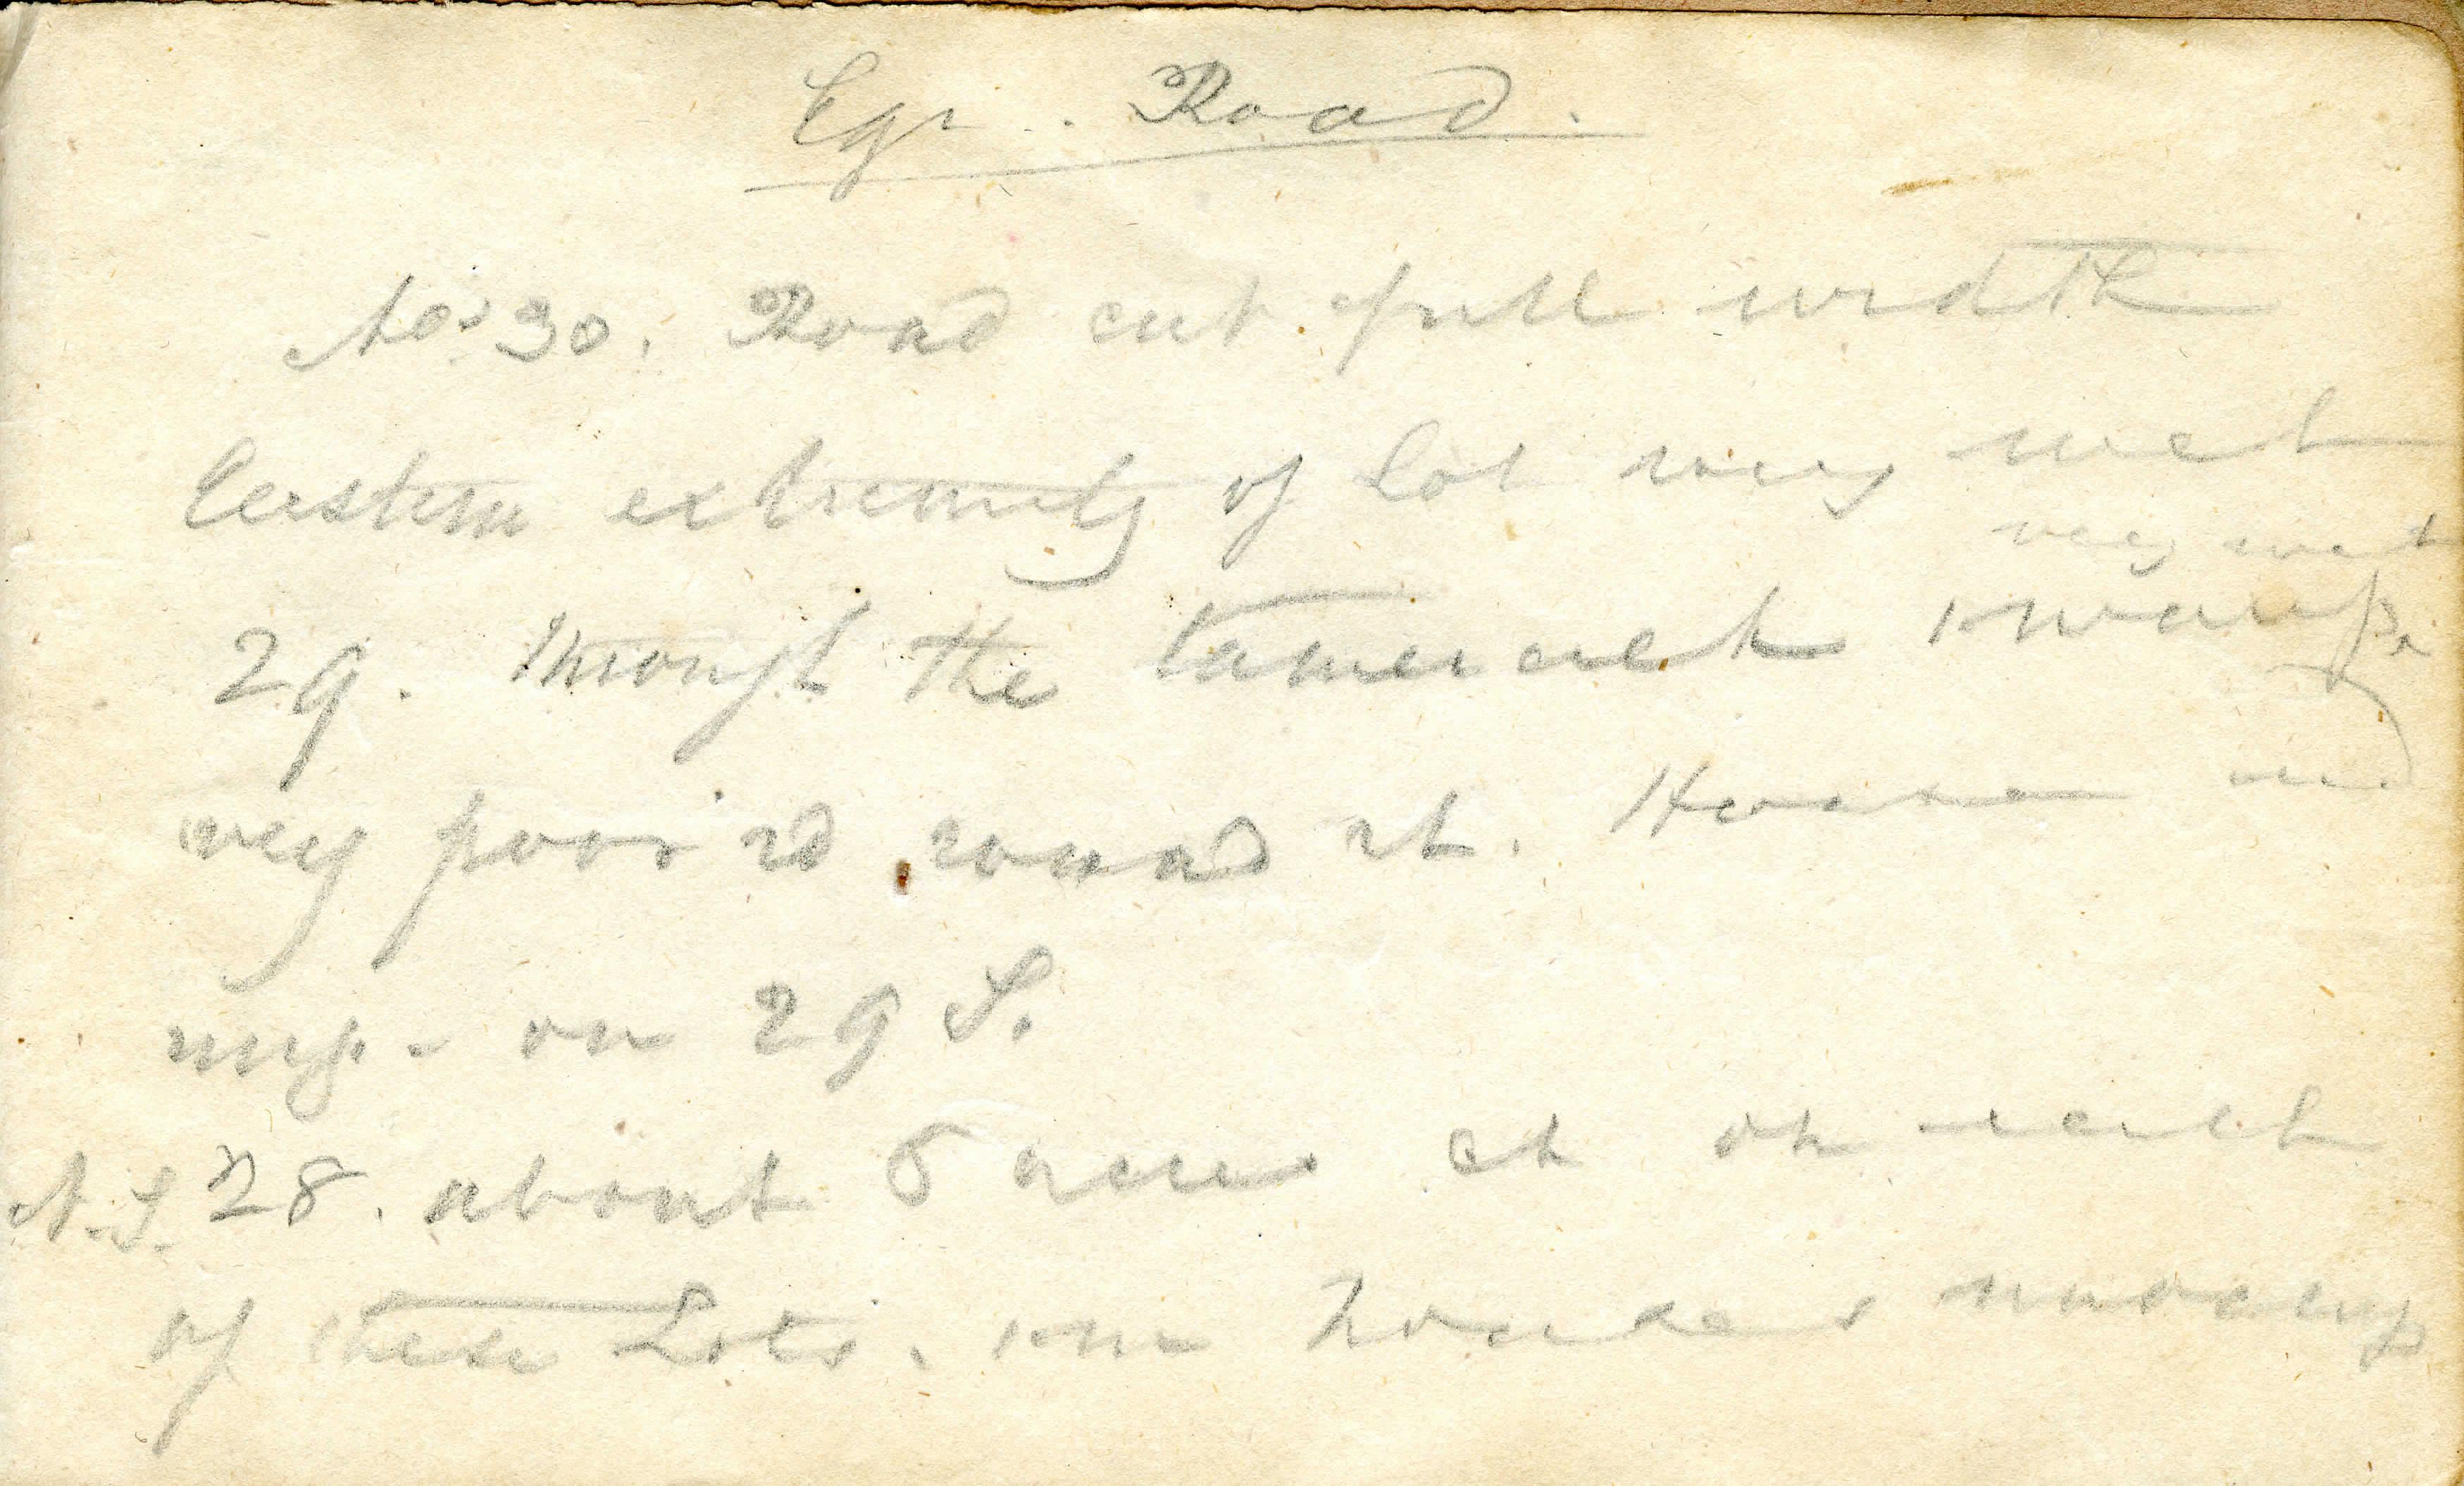 Egr. Road.
No. 30. Road cut full width
Eastern extremity of Lot very wet
very wet
29. through the tamerack swamp.
very poor rd round it. House and
imp. on 29 S.
N.S. 28. about 5 acres ch on each
of these Lots. sm houses unoccup